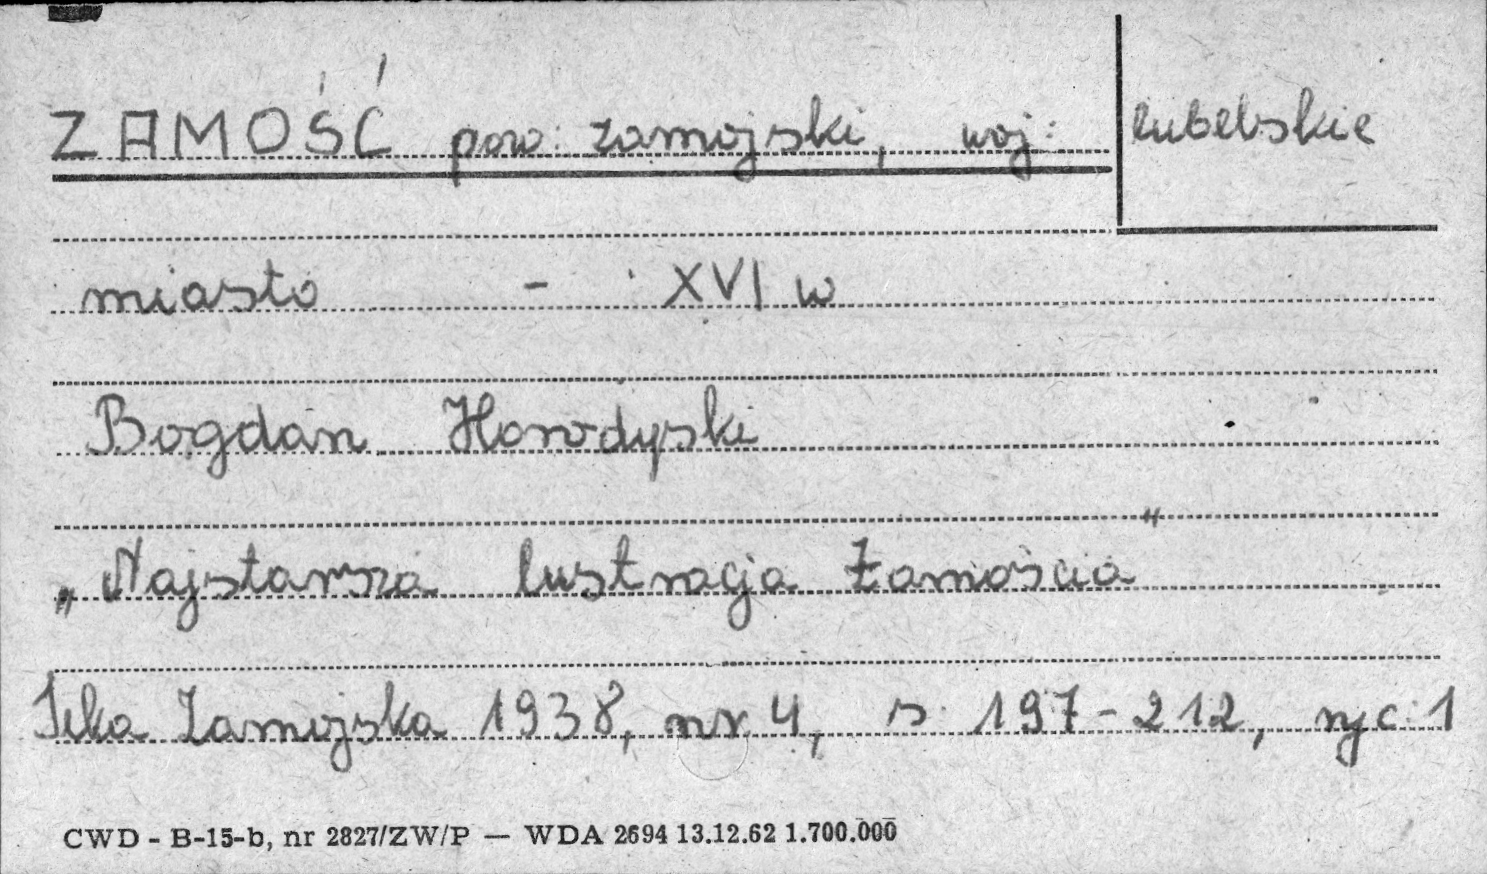 ZAMOŚĆ pow: zamojski, woj: lubelskie
miasto - XVI w
Bogdan Horodyski
„Najstarsza lustracja Zamościa"
Teka Zamojska 1938, nr 4, s. 197-212, ryc. 1
CWD - B-15-b, nr 2827/ZW/P — WDA 2694 13.12.62 1.700.000